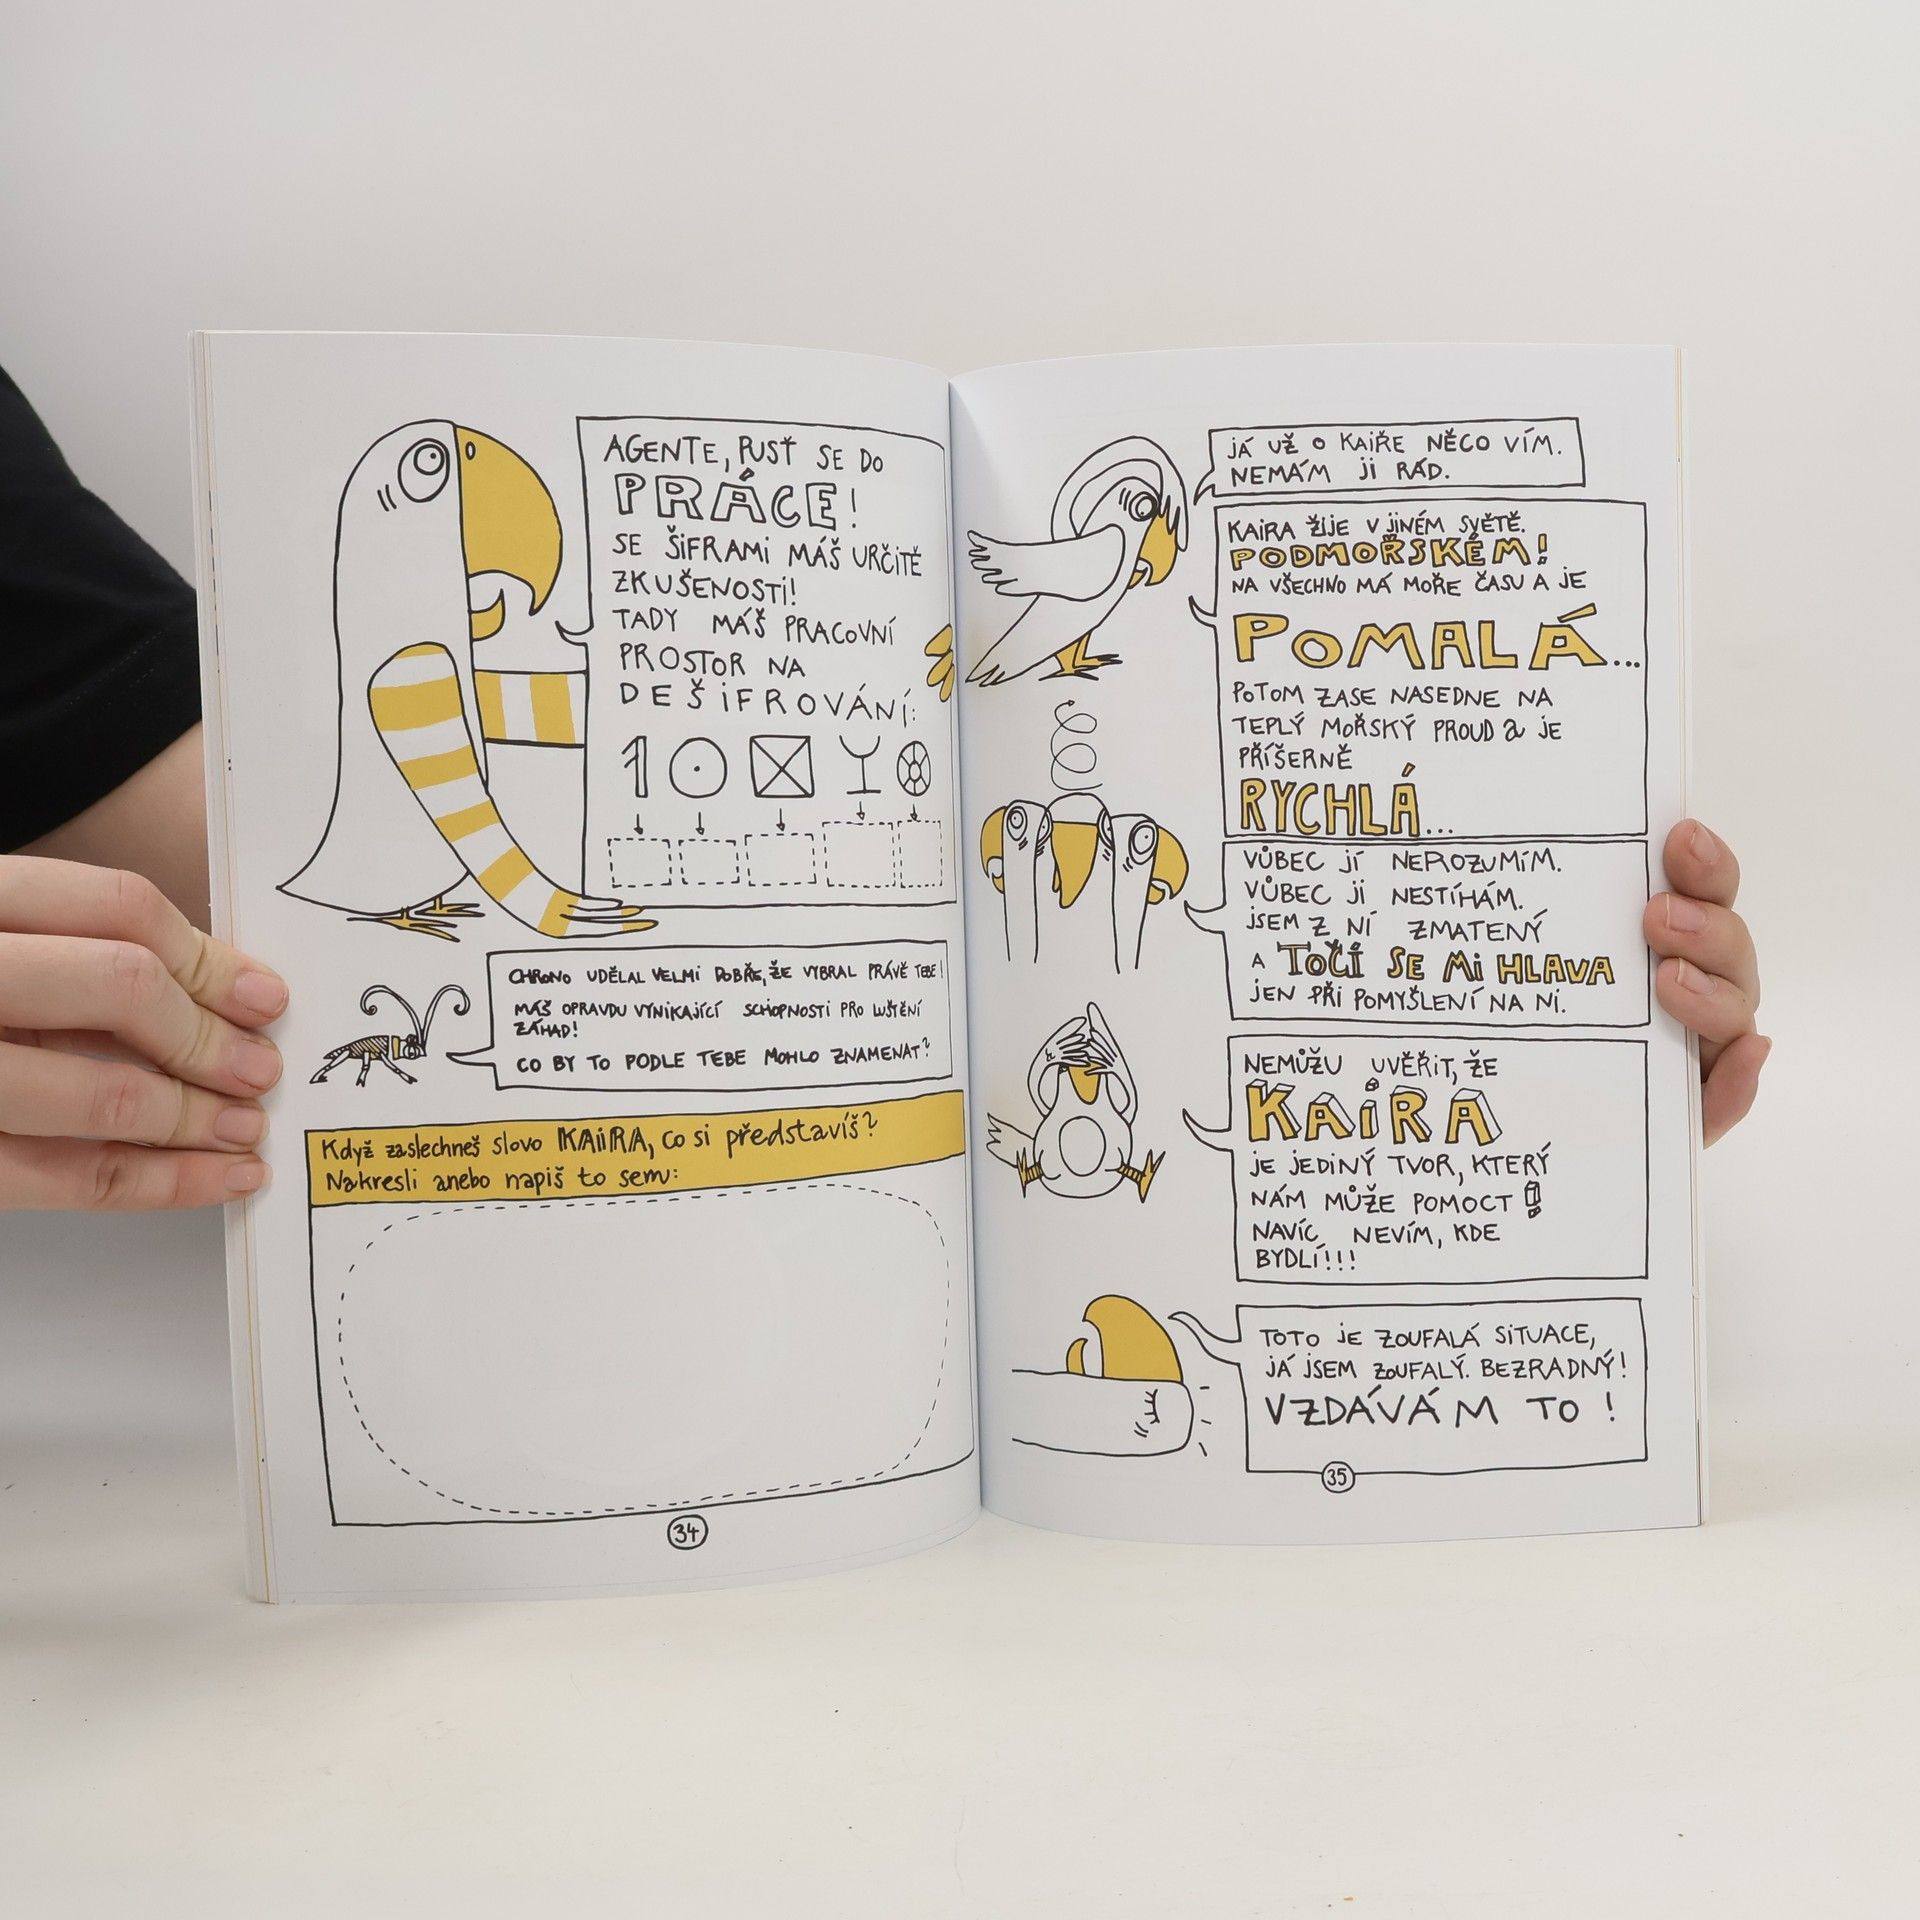 AGENTE, PUSŤ SE DO
PRÁCE!
SE ŠIFRAMI MÁŠ URČITĚ
ZKUŠENOSTI!
TADY MÁŠ PRACOVNÍ
PROSTOR NA
DEŠIFROVÁNÍ:
CHRONO UDĚLAL VELMI DOBŘE, ŽE VYBRAL PRÁVĚ TEBE!
MÁŠ OPRAVDU VYNIKAJÍCÍ SCHOPNOSTI PRO LUŠTĚNÍ
ZÁHAD!
CO BY TO PODLE TEBE MOHLO ZNAMENAT?
Když zaslechneš slovo KAIRA, co si představíš?
Nakresli anebo napiš to sem:
34
JÁ UŽ O KAIŘE NĚCO VÍM.
NEMÁM JI RÁD.
KAIRA ŽIJE V JINÉM SVĚTĚ.
PODMOŘSKÉM!
NA VŠECHNO MÁ MOŘE ČASU A JE
POMALÁ...
POTOM ZASE NASEDNE NA
TEPLÝ MOŘSKÝ PROUD a JE
PŘÍŠERNĚ
RYCHLÁ...
VŮBEC JÍ NEROZUMÍM.
VŮBEC JI NESTÍHÁM.
JSEM Z NÍ ZMATENÝ
A TOČÍ SE MI HLAVA
JEN PŘI POMYŠLENÍ NA NI.
NEMŮŽU UVĚŘIT, ŽE
KAIRA
JE JEDINÝ TVOR, KTERÝ
NÁM MŮŽE POMOCT!
NAVÍC NEVÍM, KDE
BYDLÍ!!!
TOTO JE ZOUFALÁ SITUACE,
JÁ JSEM ZOUFALÝ. BEZRADNÝ!
VZDÁVÁM TO!
35